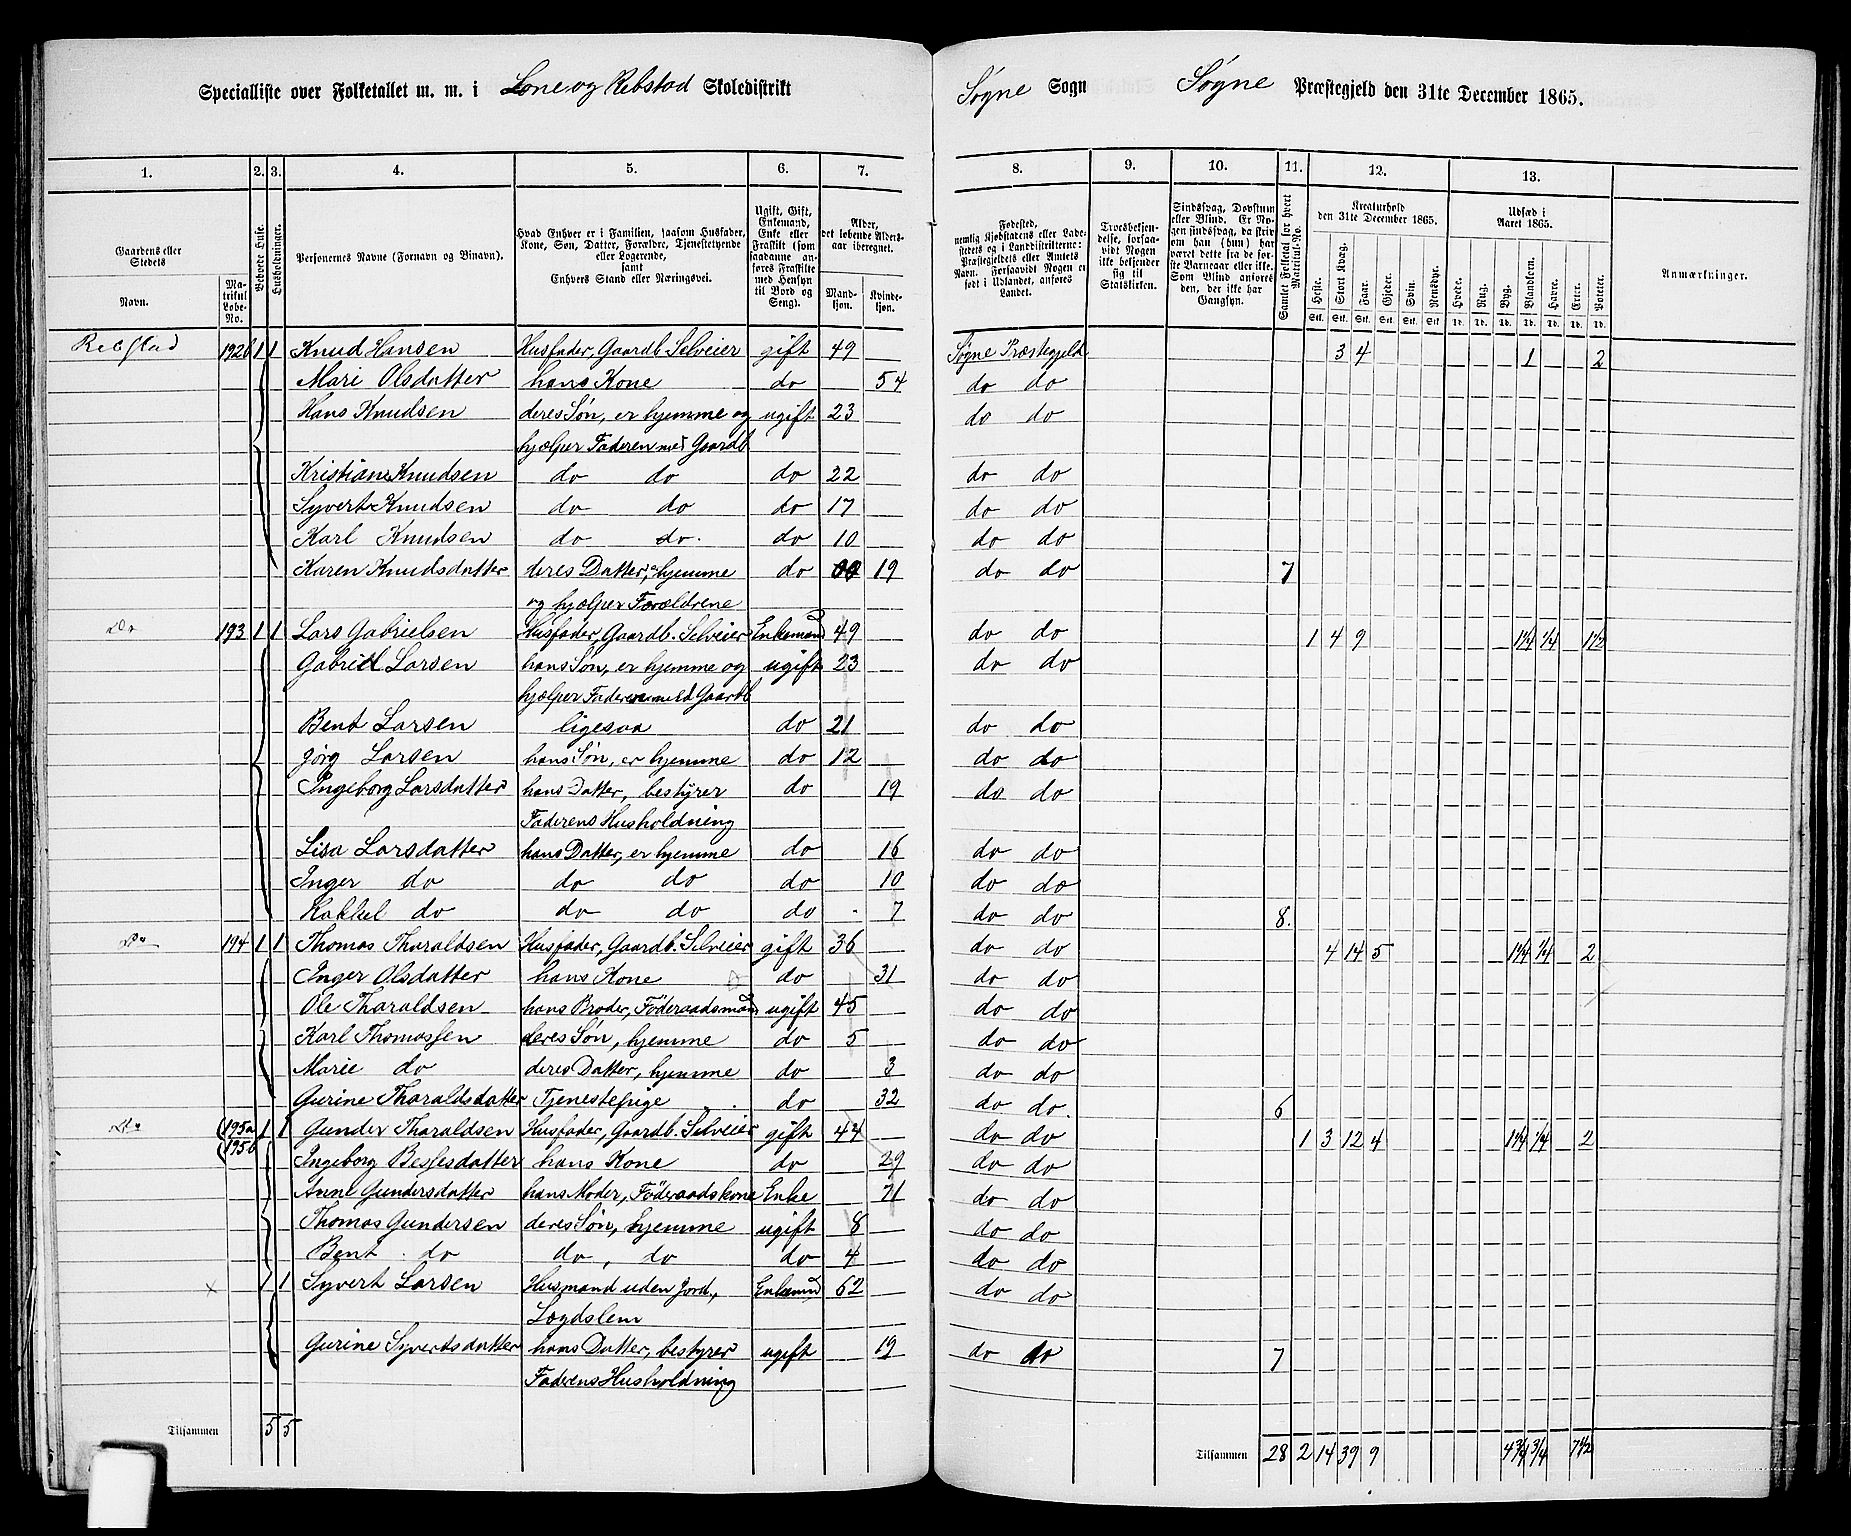 Specialliste over Folketallet m. m. i Lone og Rebstad Skoledistrikt
Søgne Sogn Søgne Præstegjeld den 31te December 1865.
1. 2. 3. 4. 5. 6. 7. 8. 9. 10. 11. 12. 13.
Gaardens eller Stedets
Navn.
Matrikul Løbe-No.
Beboede Huse.
Husholdninger.
Personernes Navne (Fornavn og Binavn).
Hvad Enhver er i Familien, saasom Husfader, Kone, Søn, Datter, Forældre, Tjenestetyende eller Logerende, samt Enhvers Stand eller Næringsvei.
Ugift, Gift, Enkemand, Enke eller Fraskilt (som saadanne anføres Fraskilte med Hensyn til Bord og Seng).
Alder, det løbende Alders-aar iberegnet.
Mandkjøn. Kvindekjøn.
Fødested, nemlig Kjøbstadens eller Ladestedets og i Landdistrikterne: Præstegjeldets eller Amtets Navn. Forsaavidt Nogen er født i Udlandet, anføres Landet.
Troesbekjendelse, forsaavidt Nogen ikke bekjender sig til Statskirken.
Sindssvag, Døvstum eller Blind. Er Nogen sindssvag, da skriv om han (hun) har været dette fra de første Barneaar eller ikke. Som Blind anføres den, der ikke har Gangsyn.
Samlet Folketal for hvert Matrikul-No.
Kreaturhold den 31te December 1865.
Heste. Stort Kvæg. Faar. Gjeder. Svin. Rensdyr.
Stk. Stk. Stk. Stk. Stk. Stk.
Udsæd i Aaret 1865.
Hvede. Rug. Byg. Blandkorn. Havre. Erter. Poteter.
Td. Td. Td. Td. Td. Td. Td.
Anmærkninger.
Rebstad 192b 1 1 Knud Hansen Husfader, Gaardb. Selveier gift 49 Søgne Præstegjeld 3 4 1 2
Mari Olsdatter hans Kone do 54 do do
Hans Knudsen deres Søn, er hjemme og ugift 23 do do
hjælper Faderen med Gaardb
Kristian Knudsen do do do 22 do do
Syvert Knudsen do do do 17 do do
Karl Knudsen do do. do 10 do do
Karen Knudsdatter deres Datter, hjemme do 19 do do 7
og hjælper Forældrene
Do 193 1 1 Lars Gabrielsen Husfader, Gaardb. Selveier Enkemand 49 do do 1 4 9 1¼ ¼ 1½
Gabriel Larsen hans Søn, er hjemme og ugift 23 do do
hjælper Faderen med Gaardb
Bent Larsen ligesaa do 21 do do
Jörg Larsen hans Søn, er hjemme do 12 do do
Ingeborg Larsdatter hans Datter, bestyrer do 19 do do
Faderens Husholdning
Lisa Larsdatter hans Datter, er hjemme do 16 do do
Inger do do do do 10 do do
Rakkel do do do do 7 do do 8.
Do 194 1 1 Thomas Tharaldsen Husfader, Gaardb. Selveier gift 36 do do 4 14 5 1¼ ¼ 2
Inger Olsdatter hans Kone do 31 do do
Ole Tharaldsen hans Broder, Föderaadsmand ugift 45 do do
Karl Thomassen deres Søn, hjemme do 5 do do
Marie do deres Datter, hjemme do 3 do do
Gurine Tharaldsdatter Tjenestepige do 32 do do. 6
Do 195a 1 1 Gunder Tharaldsen Husfader, Gaardb. Selveier gift 44 do do 1 3 12 4 1¼ ¼ 2
195b Ingeborg Bessesdatter hans Kone do 29 do do
Anne Gundersdatter hans Moder, Föderaadskone Enke 71 do do
Thomas Gundersen deres Søn, hjemme ugift 8 do do
Bent do do, do do 4 do do
x 1 1 Syvert Larsen Husmand uden Jord, Enkemand 62 do do
Lægdslem
Gurine Syvertsdatter hans Datter, bestyrer ugift 19 do do 7
Faderens Husholdning
Tilsammen 5 5
Tilsammen 28 2 14 39 9 4¾ ¾ 7½